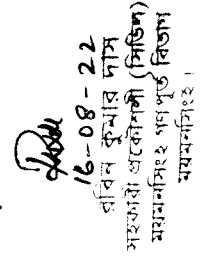 16-08-22
রবিন কুমার দাস
সহকারী প্রকৌশলী (সিভিল)
ময়মনসিংহ গণপূর্ত বিভাগ
ময়মনসিংহ।